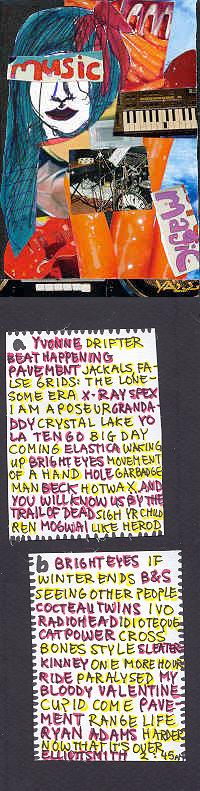 music
Music
a YVONNE DRIFTER
BEAT HAPPENING
PAVEMENT JACKALS, FA-
LSE GRIDS: THE LONE-
SOME ERA X-RAY SPEX
I AM A POSEUR GRANDA-
DDY CRYSTAL LAKE YO
LA TENGO BIG DAY
COMING ELASTICA WAKING
UP BRIGHT EYES MOVEMENT
OF A HAND HOLE GARBAGE
MAN BECK HOTWAX AND
YOU WILL KNOW US BY THE
TRAIL OF DEAD SIGH YR CHILD
REN MOGWAI LIKE HEROD
b BRIGHT EYES IF
WINTER ENDS B&S
SEEING OTHER PEOPLE
COCTEAU TWINS IVO
RADIOHEAD IDIOTEQUE
CAT POWER CROSS
BONES STYLE SLEATER
KINNEY ONE MORE HOUR
RIDE PARALYSED MY
BLOODY VALENTINE
CUPID COME PAVE-
MENT RANGE LIFE
RYAN ADAMS HARDER
NOW THAT IT'S OVER
ELLIOTT SMITH 2:45AM